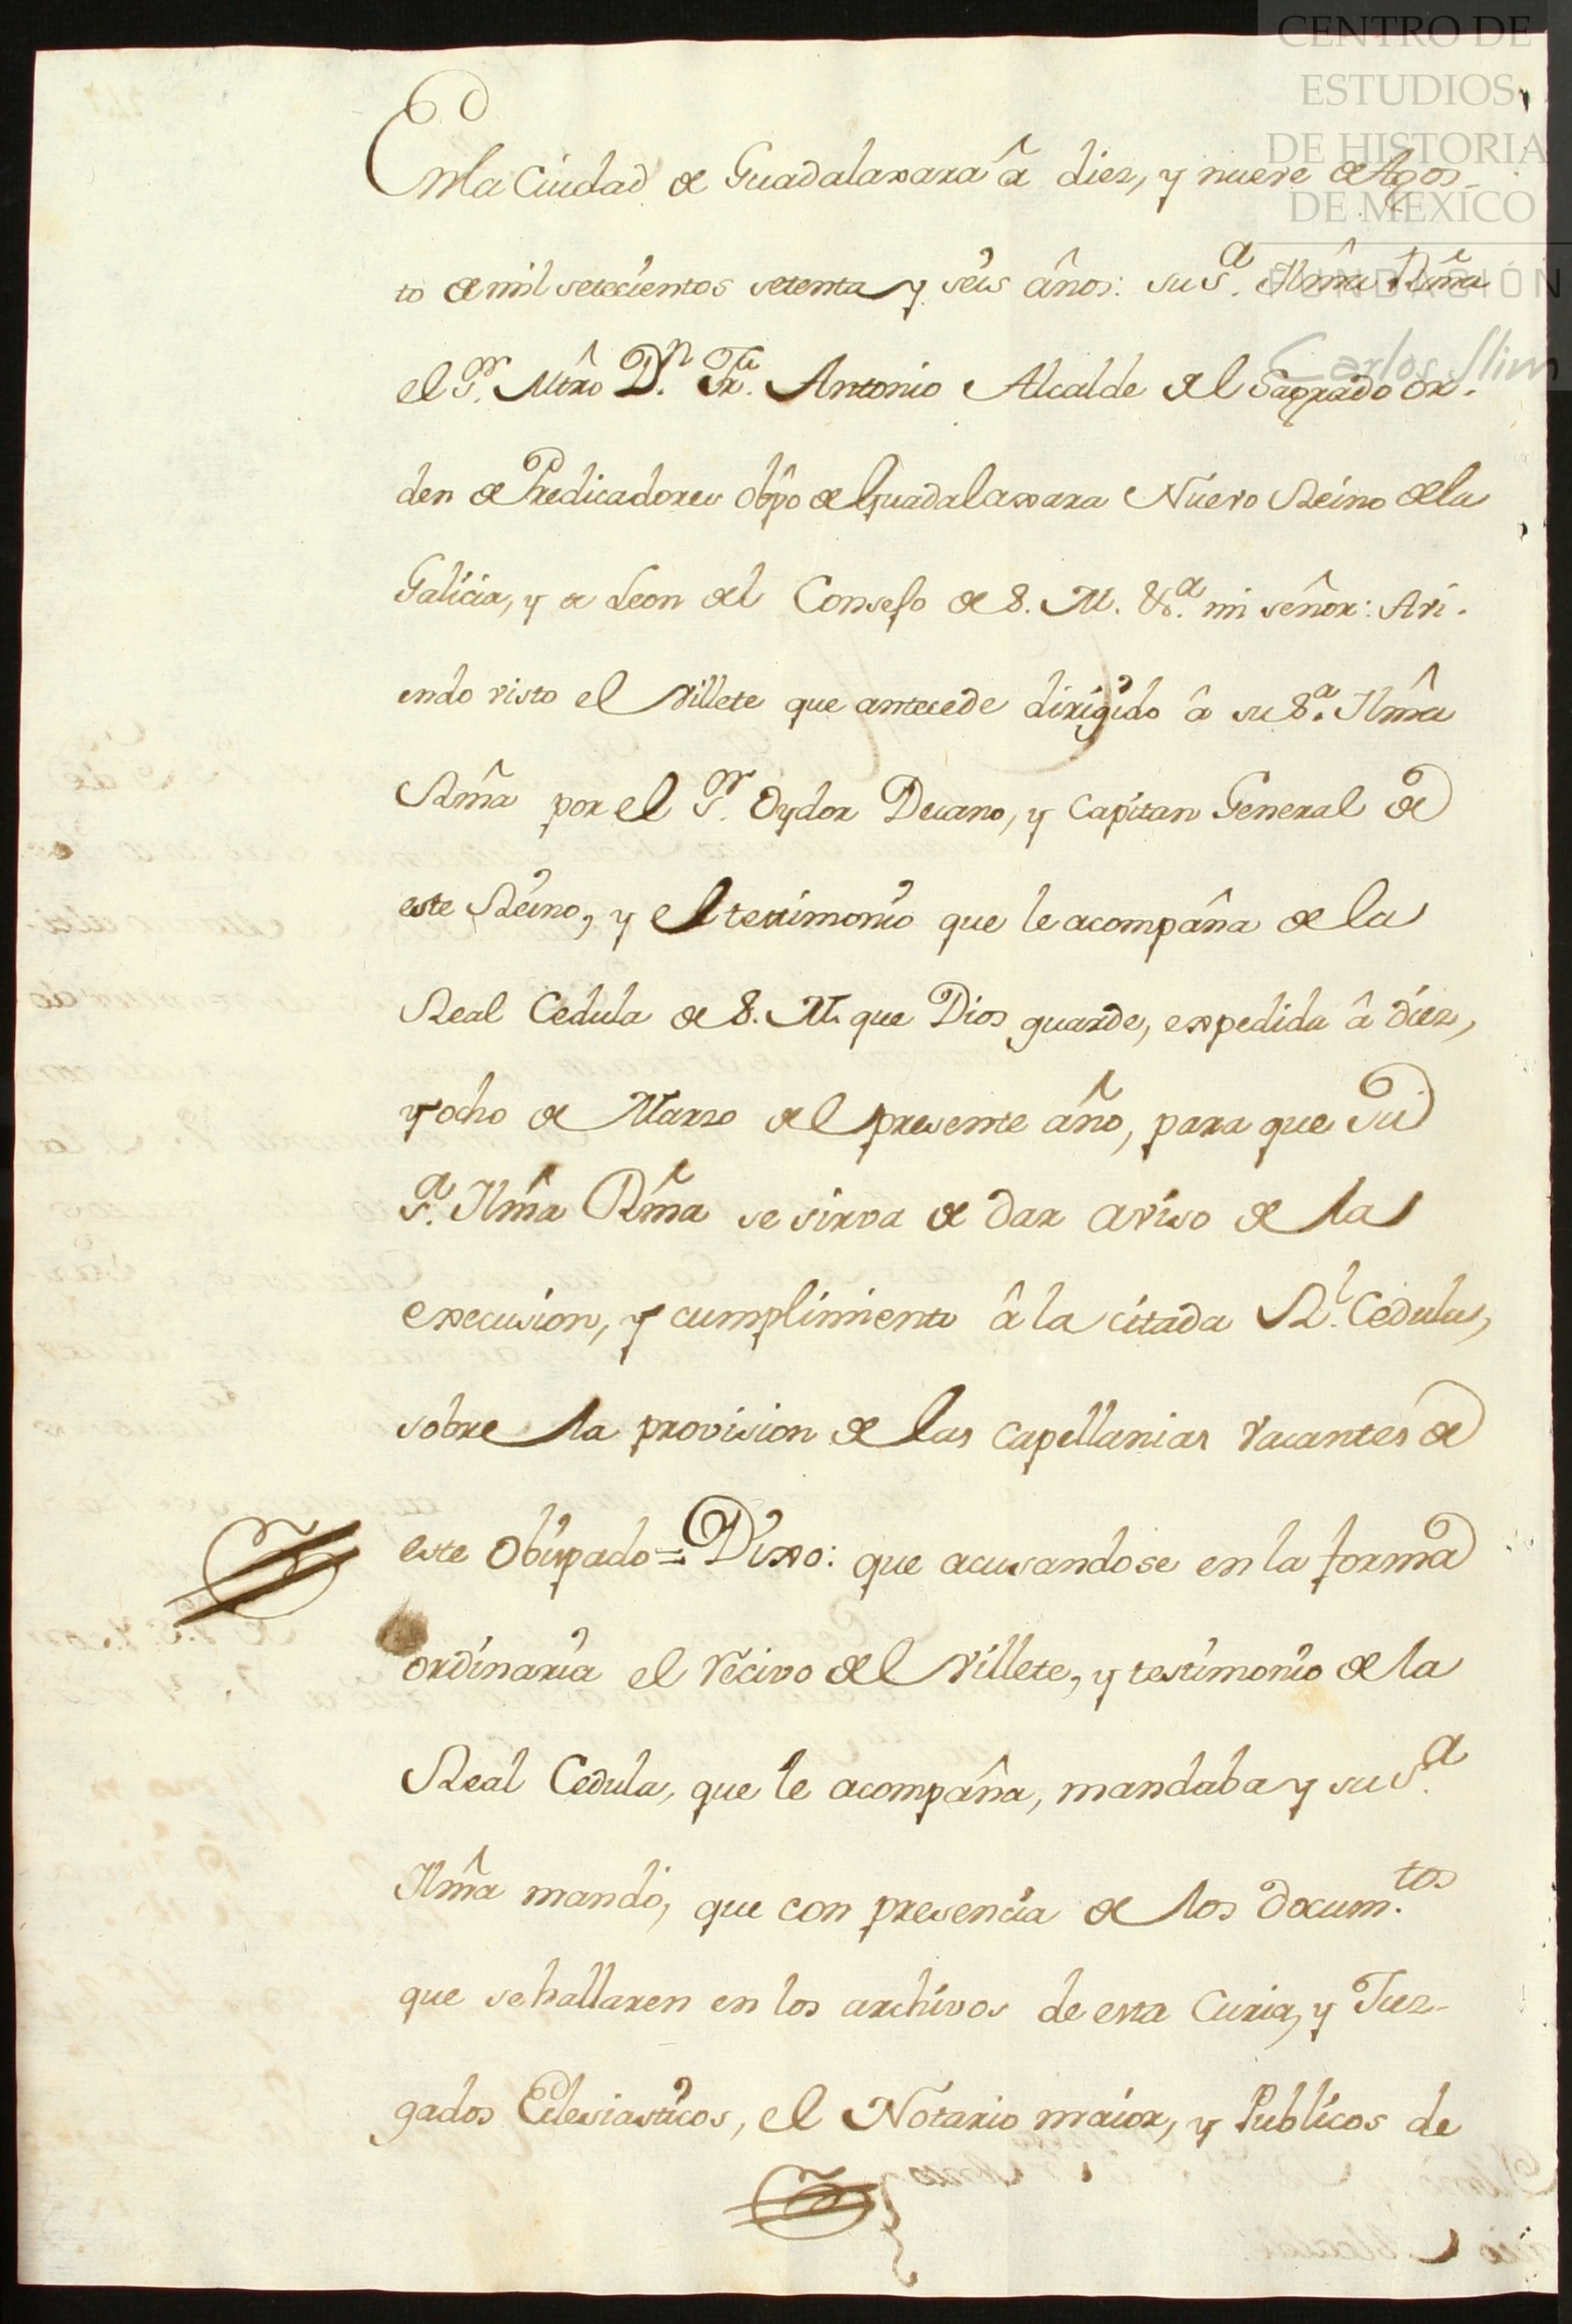 CENTRO DE
ESTUDIOS
DE HISTORIA
DE MÉXICO
FUNDACIÓN
Carlos Slim
En la Ciudad de Guadalaxara â diez, y nueve de Agos-
to de mil setecientos setenta y seis años: su S.ª Ilm̂a Rm̂a
el S.ʳ Mtrô D.ⁿ Fr. Antonio Alcalde del Sagrado Or.
den de Predicadores Obp̂o de Guadalaxara Nuevo Reino de la
Galicia, y de Leon del Consejo de S. M. &.ª mi señor: Avi.
endo visto el Villete que antecede dirigido â su S.ª Ilm̂a
Rm̂a por el S.ʳ Oydor Decano, y Capitan General de
este Reino, y el testimonio que le acompaña de la
Real Cedula de S. M. que Dios guarde, expedida â diez,
y ocho de Marzo del presente año, para que Su
S.ª Ilm̂a Rm̂a se sirva de dar aviso de la
execusion, y cumplimiento â la citada R.ˡ Cedula,
sobre la provision de las Capellanias Vacantes de
este Obispado = Dixo: que acusandose en la forma
ordinaria el recivo del Villete, y testimonio de la
Real Cedula, que le acompaña, mandaba y su S.ª
Ilm̂a mandó, que con presencia de los docum.ᵗᵒˢ
que se hallaren en los archivos de esta Curia, y Juz-
gados Eclesiasticos, el Notario maior, y Publicos de